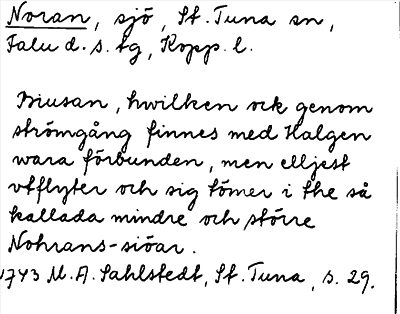 Noran, sjö, St. Tuna sn,
Falu d. s. tg, Kopp. l.
Biusan, hwilken ock genom
strömgång finnes med Halgen
wara förbunden, men elljest
vtflyter och sig tömer i the så
kallada mindre och större
Nohrans-siöar.
1743 M. A. Sahlstedt, St. Tuna, s. 29.